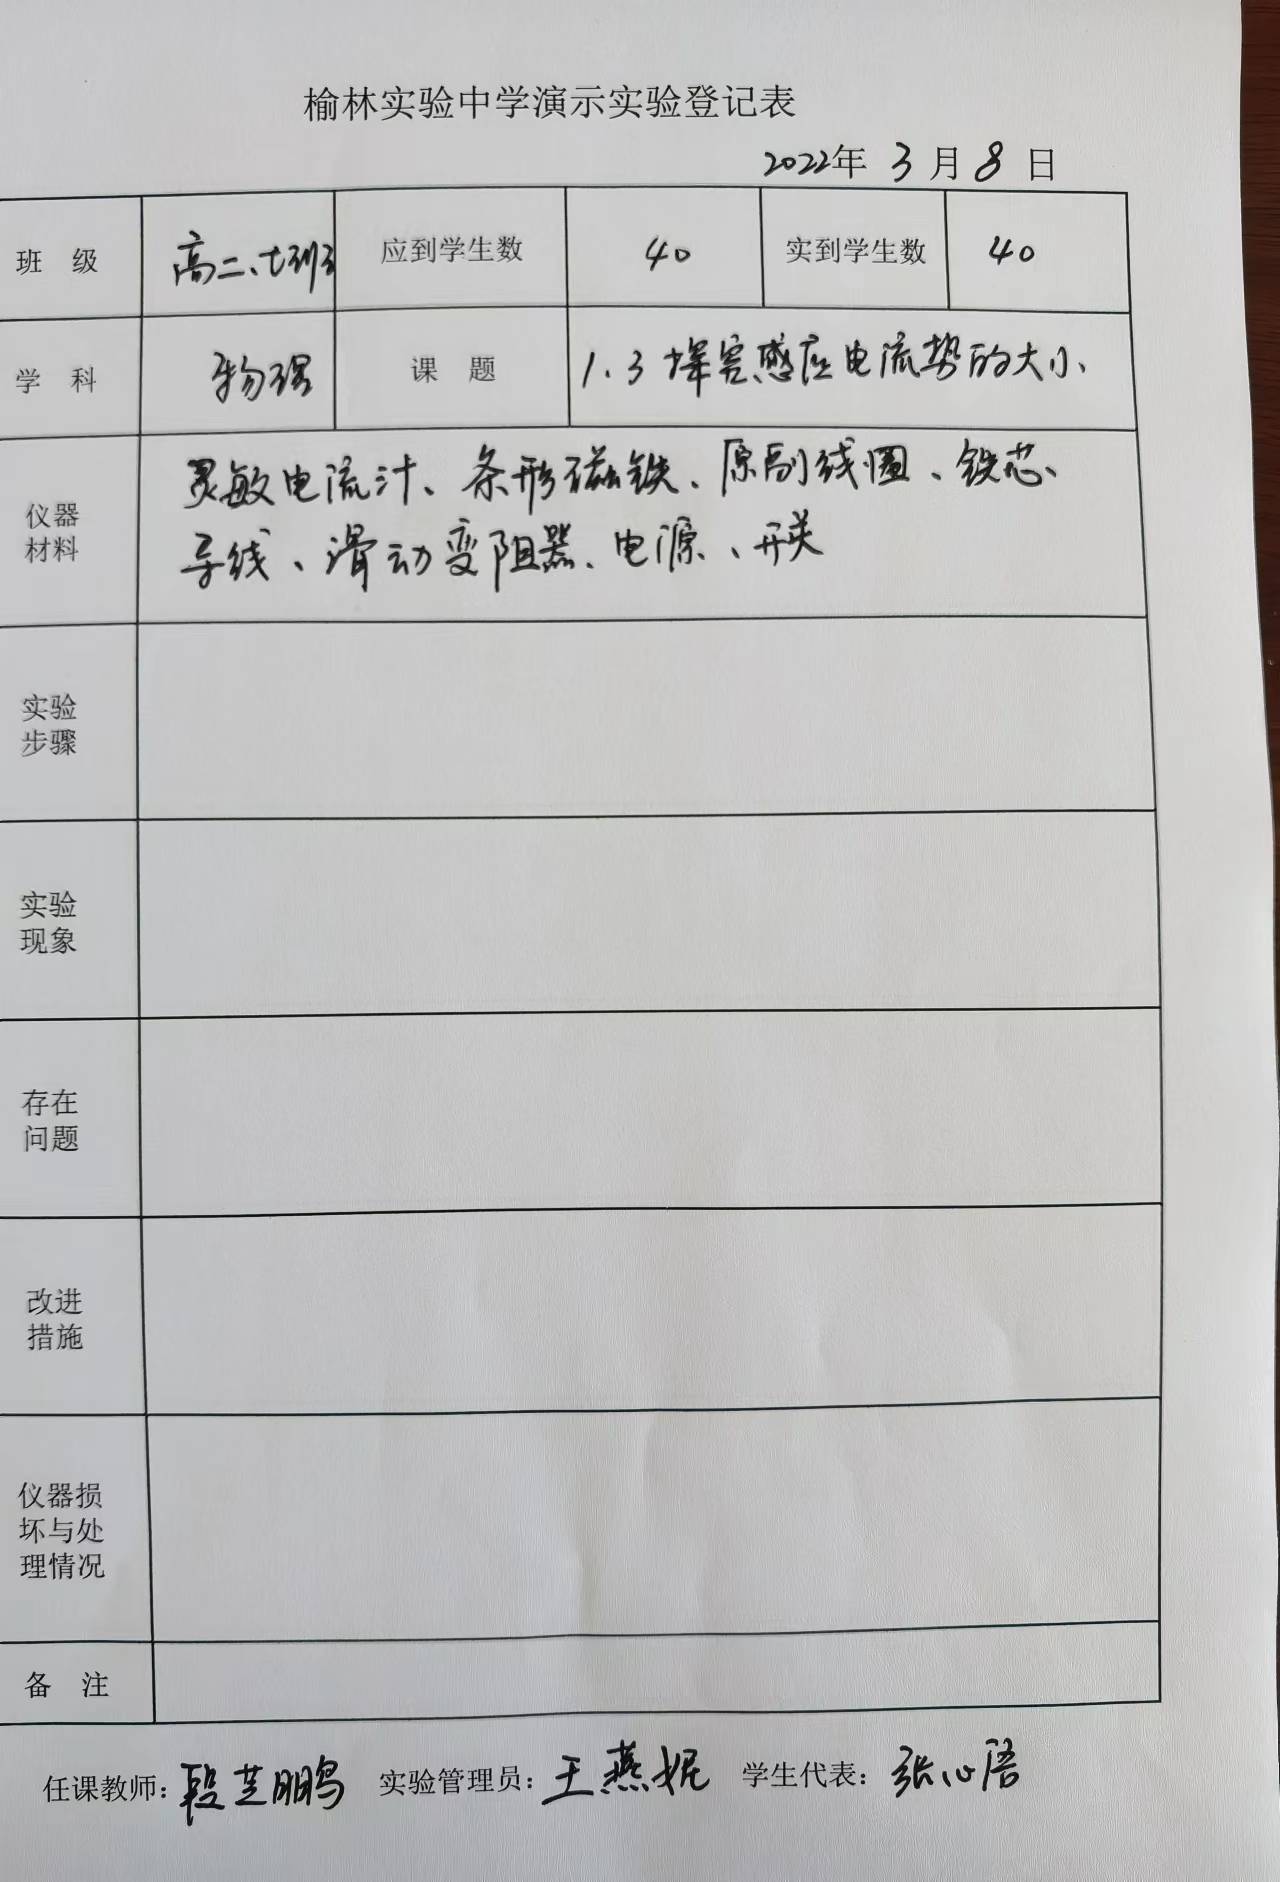 榆林实验中学演示实验登记表
2022年 3 月 8 日
班 级 高二、七班 应到学生数 40 实到学生数 40
学 科 物理 课 题 1.3 探究感应电流势的大小
仪器材料 灵敏电流计、条形磁铁、原副线圈、铁芯、
导线、滑动变阻器、电源、开关
实验
步骤
实验
现象
存在
问题
改进
措施
仪器损
坏与处
理情况
备 注
任课教师：段芝鹏 实验管理员：王燕妮 学生代表：张心语